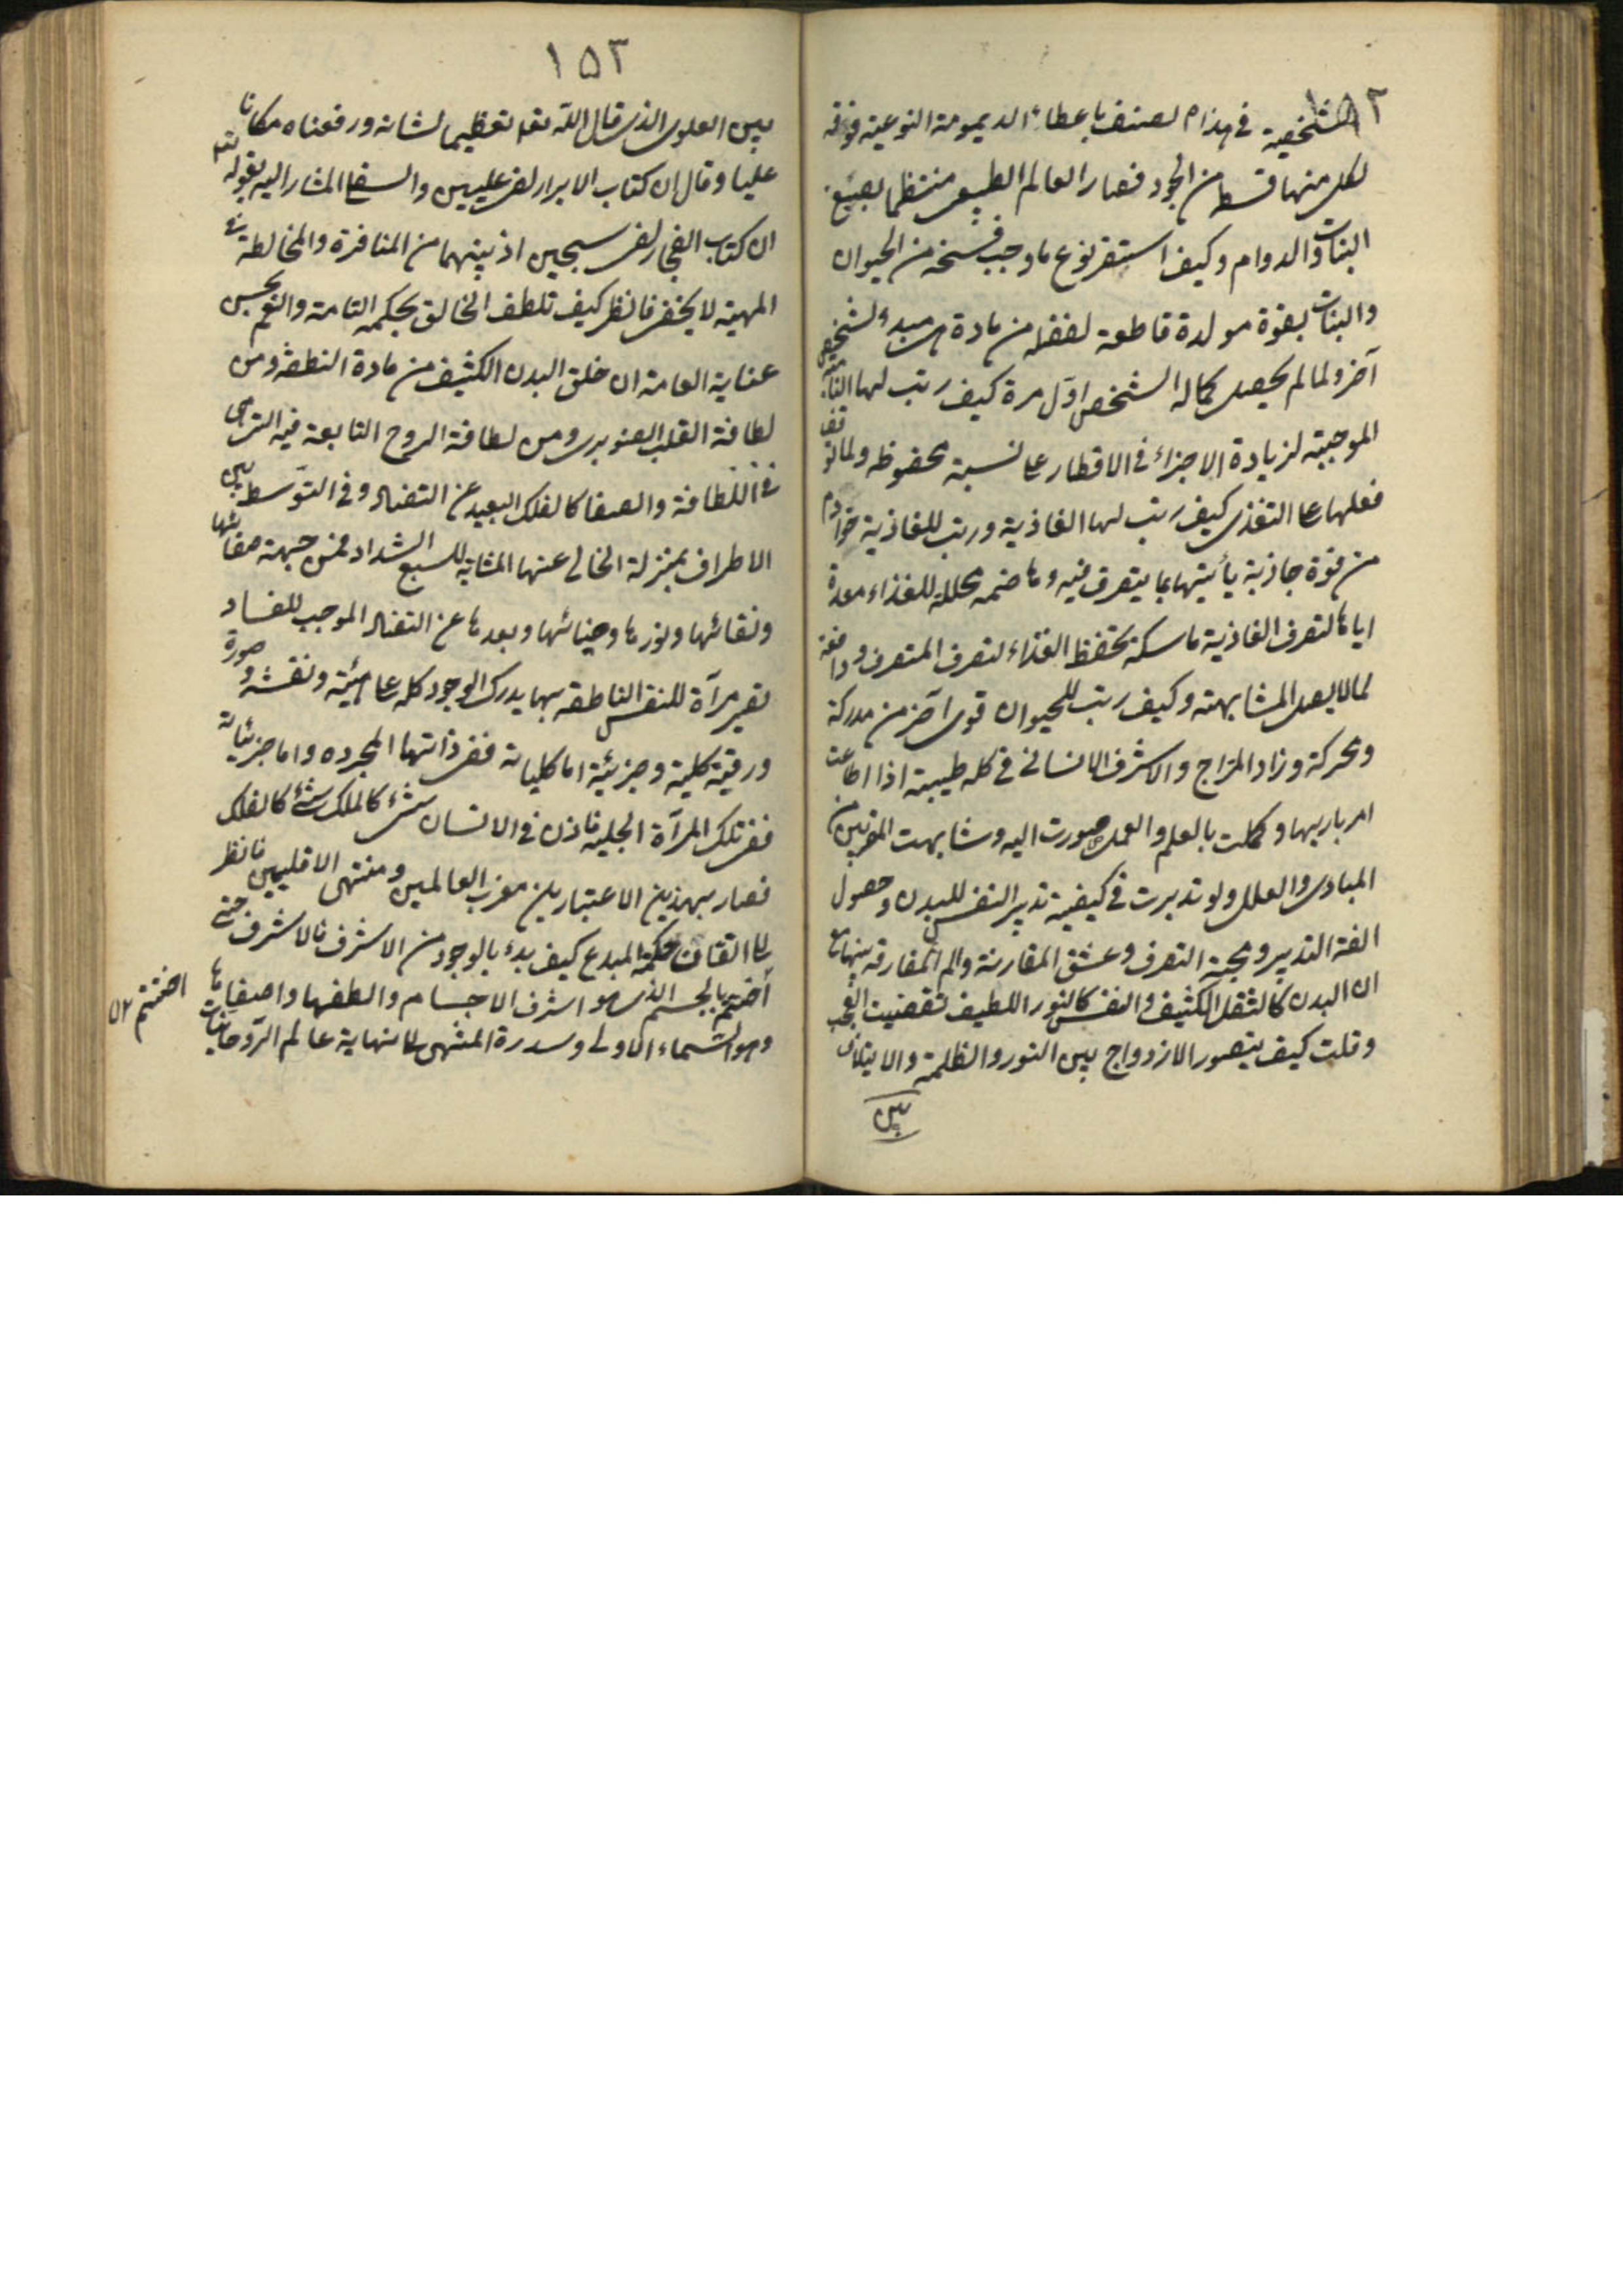 ١٥٢
الشخصية في هذا م لصنف باعطاء الديمومة النوعية فوفه
لكل منها قسط من الجود فصار العالم الطبيعي منتظما بصبغ
النبات والدوام وكيف استبقى نوع ما وجب فسخه من الحيوان
والنبات بقوة مولدة قاطعة لفضلة من مادة هي مبدء لشخص
آخر ولما لم يحصل كماله الشخص اول مرة كيف رتب لها النامية
الموجبة لزيادة الاجزاء في الاقطار على نسبة محفوظة ولما توقف
فعلها على التغذي كيف رتب لها الغاذية ورتب للغاذية خوادم
من قوة جاذبة يأتيها بما يتصرف فيه وهاضمة محللة للغذاء معدة
اياه لتصرف الغاذية ماسكة تحفظ الغذاء لتصرف المتصرف ودافعة
لما لا يصل المشابهة وكيف رتب للحيوان قوى آخر من مدركة
ومحركة وزاد المزاج والاشرف الانساني في كلمه طيبة اذا اطاعت
امر باريها وكملت بالعلم والعمل صورت اليه وشابهت المقربين من
المبادي والعلل ولو تدبرت في كيفية تدبير النفس للبدن وحصول
الفة التدبير ومحبة التصرف وعشق المقارنة والم المفارقة بينهما مع
ان البدن كالثقل الكثيف والنفس كالنور اللطيف لقضيت العجب
وقلت كيف يتصور الازدواج بين النور والظلمة والايتلاف
بين
١٥٣
بين العلوي الذي قال الله تعالى تعظيما لشانه ورفعناه مكانا
عليا وقال ان كتاب الابرار لفي عليين والسفلي المشار اليه بقوله تعالى
ان كتاب الفجار لفي سجين اذ بينهما من المنافرة والمخالطة في
المهية لا يخفى فانظر كيف تلطف الخالق بحكمه التامة والنعم بحسن
عناية العامة ان خلق البدن الكثيف من مادة النطفة ومن
لطافة القلب الصنوبري ومن لطافة الروح التابعة فيه التي هي
في اللطافة والصفا كالفلك البعيد عن التضاد وفي التوسط بين
الاطراف بمنزلة الخالي عنها المشابه للسبع الشداد فمن جهة صفائها
ونقائها ونورها وضيائها وبعدها عن التضاد الموجب للفساد
تصير مرآة للنفس الناطقة بها يدرك الوجود كله على هيئة ونقشه وصورة
ورقية كلية وجزئية اما كلياته ففي ذاتها المجرده واما جزئياته
ففي تلك المرآة الجلية فاذن في الانسان شئ كالملك شئ كالفلك
فصار بهذين الاعتبارين مغرب العالمين ومنتهى الاقليمين فانظر
الى اتقان حكمة المبدع كيف بدء بالوجود من الاشرف فالاشرف حتى
اختتم بالجسم الذي هو اشرف الاجسام والطفها واصفاها
وهو السماء الاولى وسدرة المنتهى الى نهاية عالم الروحانيات
اختتم